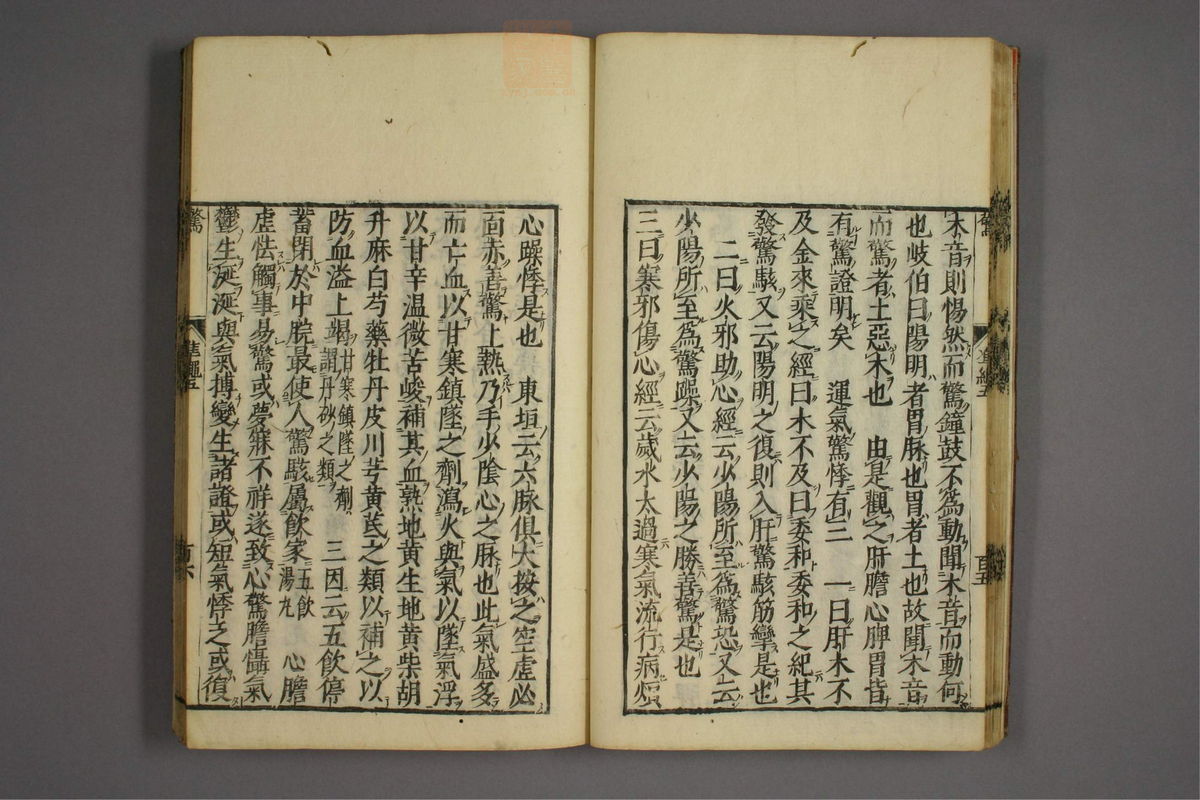 木音則惕然而驚鐘鼓不爲動聞木音而動何
也岐伯曰陽明者胃脉也胃者土也故聞木音
而驚者土惡木也　由是觀之肝膽心脾胃皆
有驚證明矣　運氣驚悸有三　一曰肝木不
及金來乘之經曰木不及曰委和委和之紀其
發驚駭又云陽明之復則入肝驚駭筋攣是也
二曰火邪助心經云少陽所至爲驚恐又云
少陽所至爲驚躁又云少陽之勝善驚是也
三曰寒邪傷心經云歲水太過寒氣流行病煩
心躁悸是也　東垣云六脉俱大按之空虛必
面赤善驚上熱乃手少陰心之脉也此氣盛多
而亡血以甘寒鎮墜之劑瀉火與氣以墜氣浮
以甘辛温微苦峻補其血熟地黃生地黃柴胡
升麻白芍藥牡丹皮川芎黄芪之類以補之以
防血溢上竭甘寒鎮墜之劑謂丹砂之類　三因云五飲停
蓄閉於中脘最使人驚駭屬飲家五飲湯丸　心膽
虛怯觸事易驚或夢寐不祥遂致心驚膽懾氣
鬱生涎涎與氣搏變生諸證或短氣悸乏或復
驚
百六
驚
百五